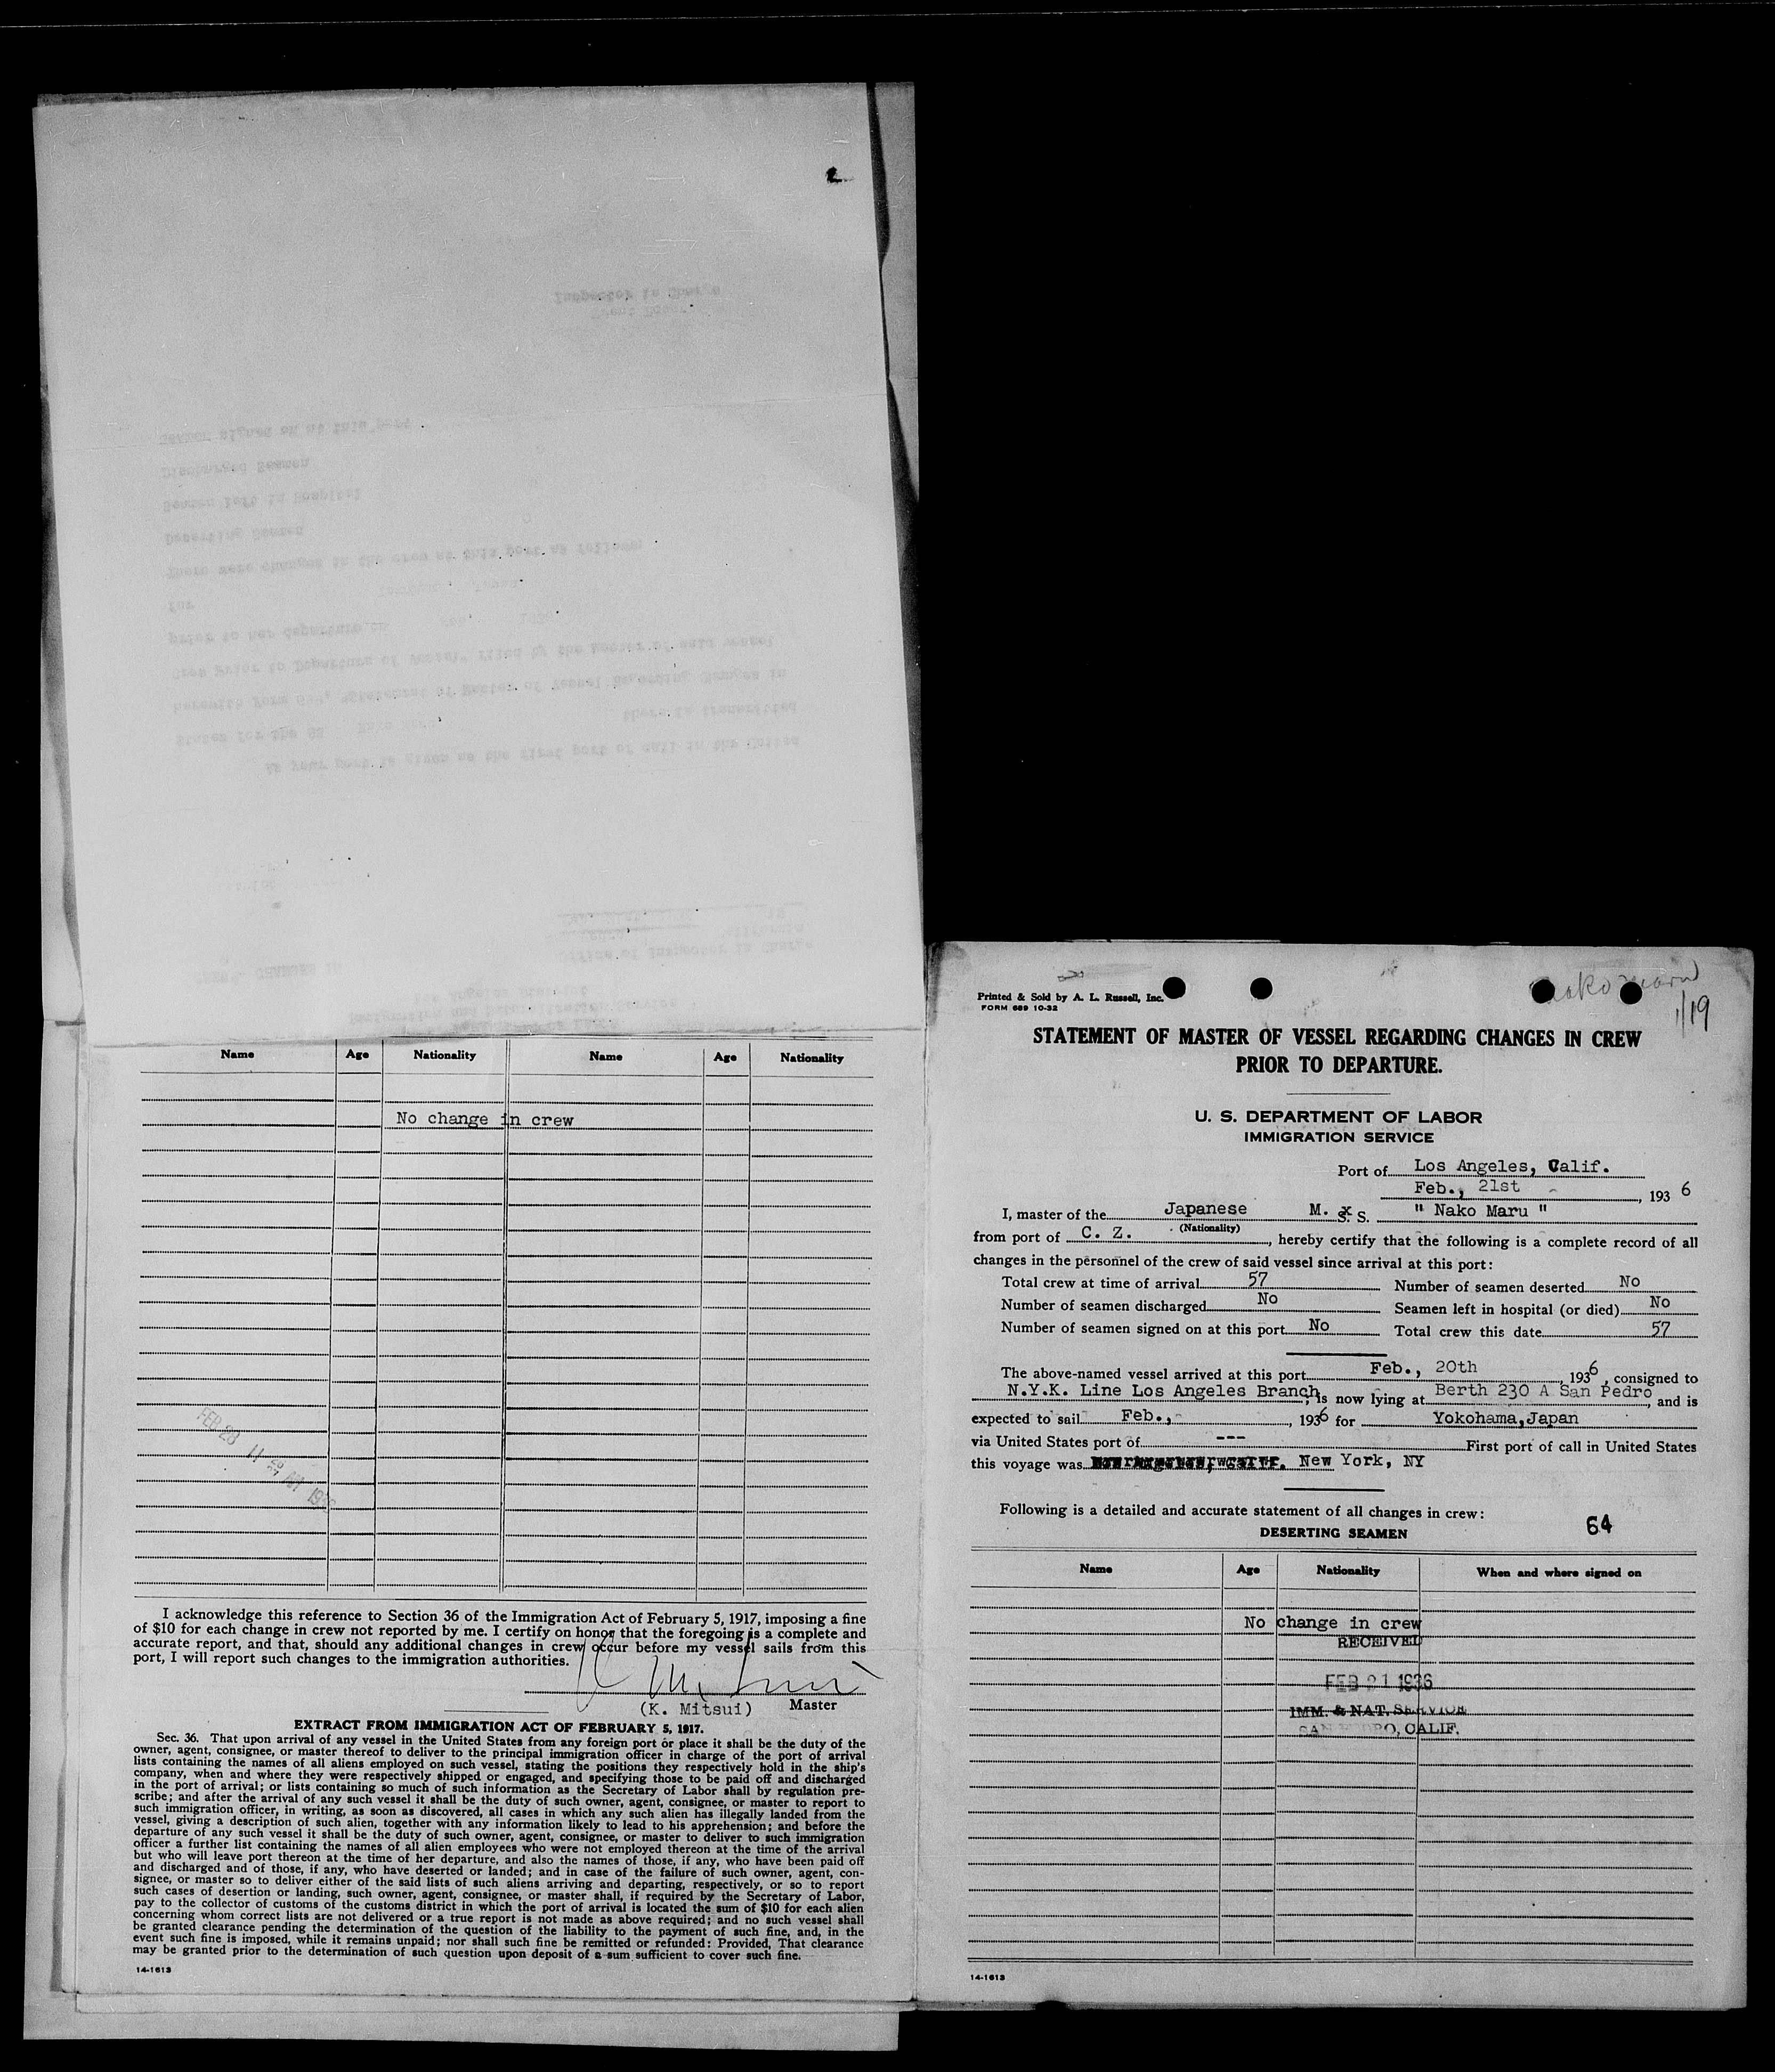 Name Age Nationality Name Age Nationality
No change in crew
FEB 28 11
I acknowledge this reference to Section 36 of the Immigration Act of February 5, 1917, imposing a fine
of $10 for each change in crew not reported by me. I certify on honor that the foregoing is a complete and
accurate report, and that, should any additional changes in crew occur before my vessel sails from this
port, I will report such changes to the immigration authorities.
K Mitsui
(K. Mitsui) Master
EXTRACT FROM IMMIGRATION ACT OF FEBRUARY 5, 1917.
Sec. 36. That upon arrival of any vessel in the United States from any foreign port or place it shall be the duty of the
owner, agent, consignee, or master thereof to deliver to the principal immigration officer in charge of the port of arrival
lists containing the names of all aliens employed on such vessel, stating the positions they respectively hold in the ship's
company, when and where they were respectively shipped or engaged, and specifying those to be paid off and discharged
in the port of arrival; or lists containing so much of such information as the Secretary of Labor shall by regulation pre-
scribe; and after the arrival of any such vessel it shall be the duty of such owner, agent, consignee, or master to report to
such immigration officer, in writing, as soon as discovered, all cases in which any such alien has illegally landed from the
vessel, giving a description of such alien, together with any information likely to lead to his apprehension; and before the
departure of any such vessel it shall be the duty of such owner, agent, consignee, or master to deliver to such immigration
officer a further list containing the names of all alien employees who were not employed thereon at the time of the arrival
but who will leave port thereon at the time of her departure, and also the names of those, if any, who have been paid off
and discharged and of those, if any, who have deserted or landed; and in case of the failure of such owner, agent, con-
signee, or master so to deliver either of the said lists of such aliens arriving and departing, respectively, or so to report
such cases of desertion or landing, such owner, agent, consignee, or master shall, if required by the Secretary of Labor,
pay to the collector of customs of the customs district in which the port of arrival is located the sum of $10 for each alien
concerning whom correct lists are not delivered or a true report is not made as above required; and no such vessel shall
be granted clearance pending the determination of the question of the liability to the payment of such fine, and, in the
event such fine is imposed, while it remains unpaid; nor shall such fine be remitted or refunded: Provided, That clearance
may be granted prior to the determination of such question upon deposit of a sum sufficient to cover such fine.
14-1613
Nako Maru
1/19
Printed & Sold by A. L. Russell, Inc.
FORM 689 10-32
STATEMENT OF MASTER OF VESSEL REGARDING CHANGES IN CREW
PRIOR TO DEPARTURE.
U. S. DEPARTMENT OF LABOR
IMMIGRATION SERVICE
Port of Los Angeles, Calif.
Feb., 21st, 1936
I, master of the Japanese M. S. S. " Nako Maru "
(Nationality)
from port of C. Z., hereby certify that the following is a complete record of all
changes in the personnel of the crew of said vessel since arrival at this port:
Total crew at time of arrival 57 Number of seamen deserted No
Number of seamen discharged No Seamen left in hospital (or died) No
Number of seamen signed on at this port No Total crew this date 57
The above-named vessel arrived at this port Feb., 20th, 1936, consigned to
N.Y.K. Line Los Angeles Branch, is now lying at Berth 230 A San Pedro, and is
expected to sail Feb.,- , 1936 for Yokohama, Japan
via United States port of --- First port of call in United States
this voyage was New York, NY
Following is a detailed and accurate statement of all changes in crew:
64
DESERTING SEAMEN
Name Age Nationality When and where signed on
No change in crew
RECEIVED
FEB 21 1936
IMM. & NAT. SERVICE
SAN PEDRO, CALIF.
14-1613